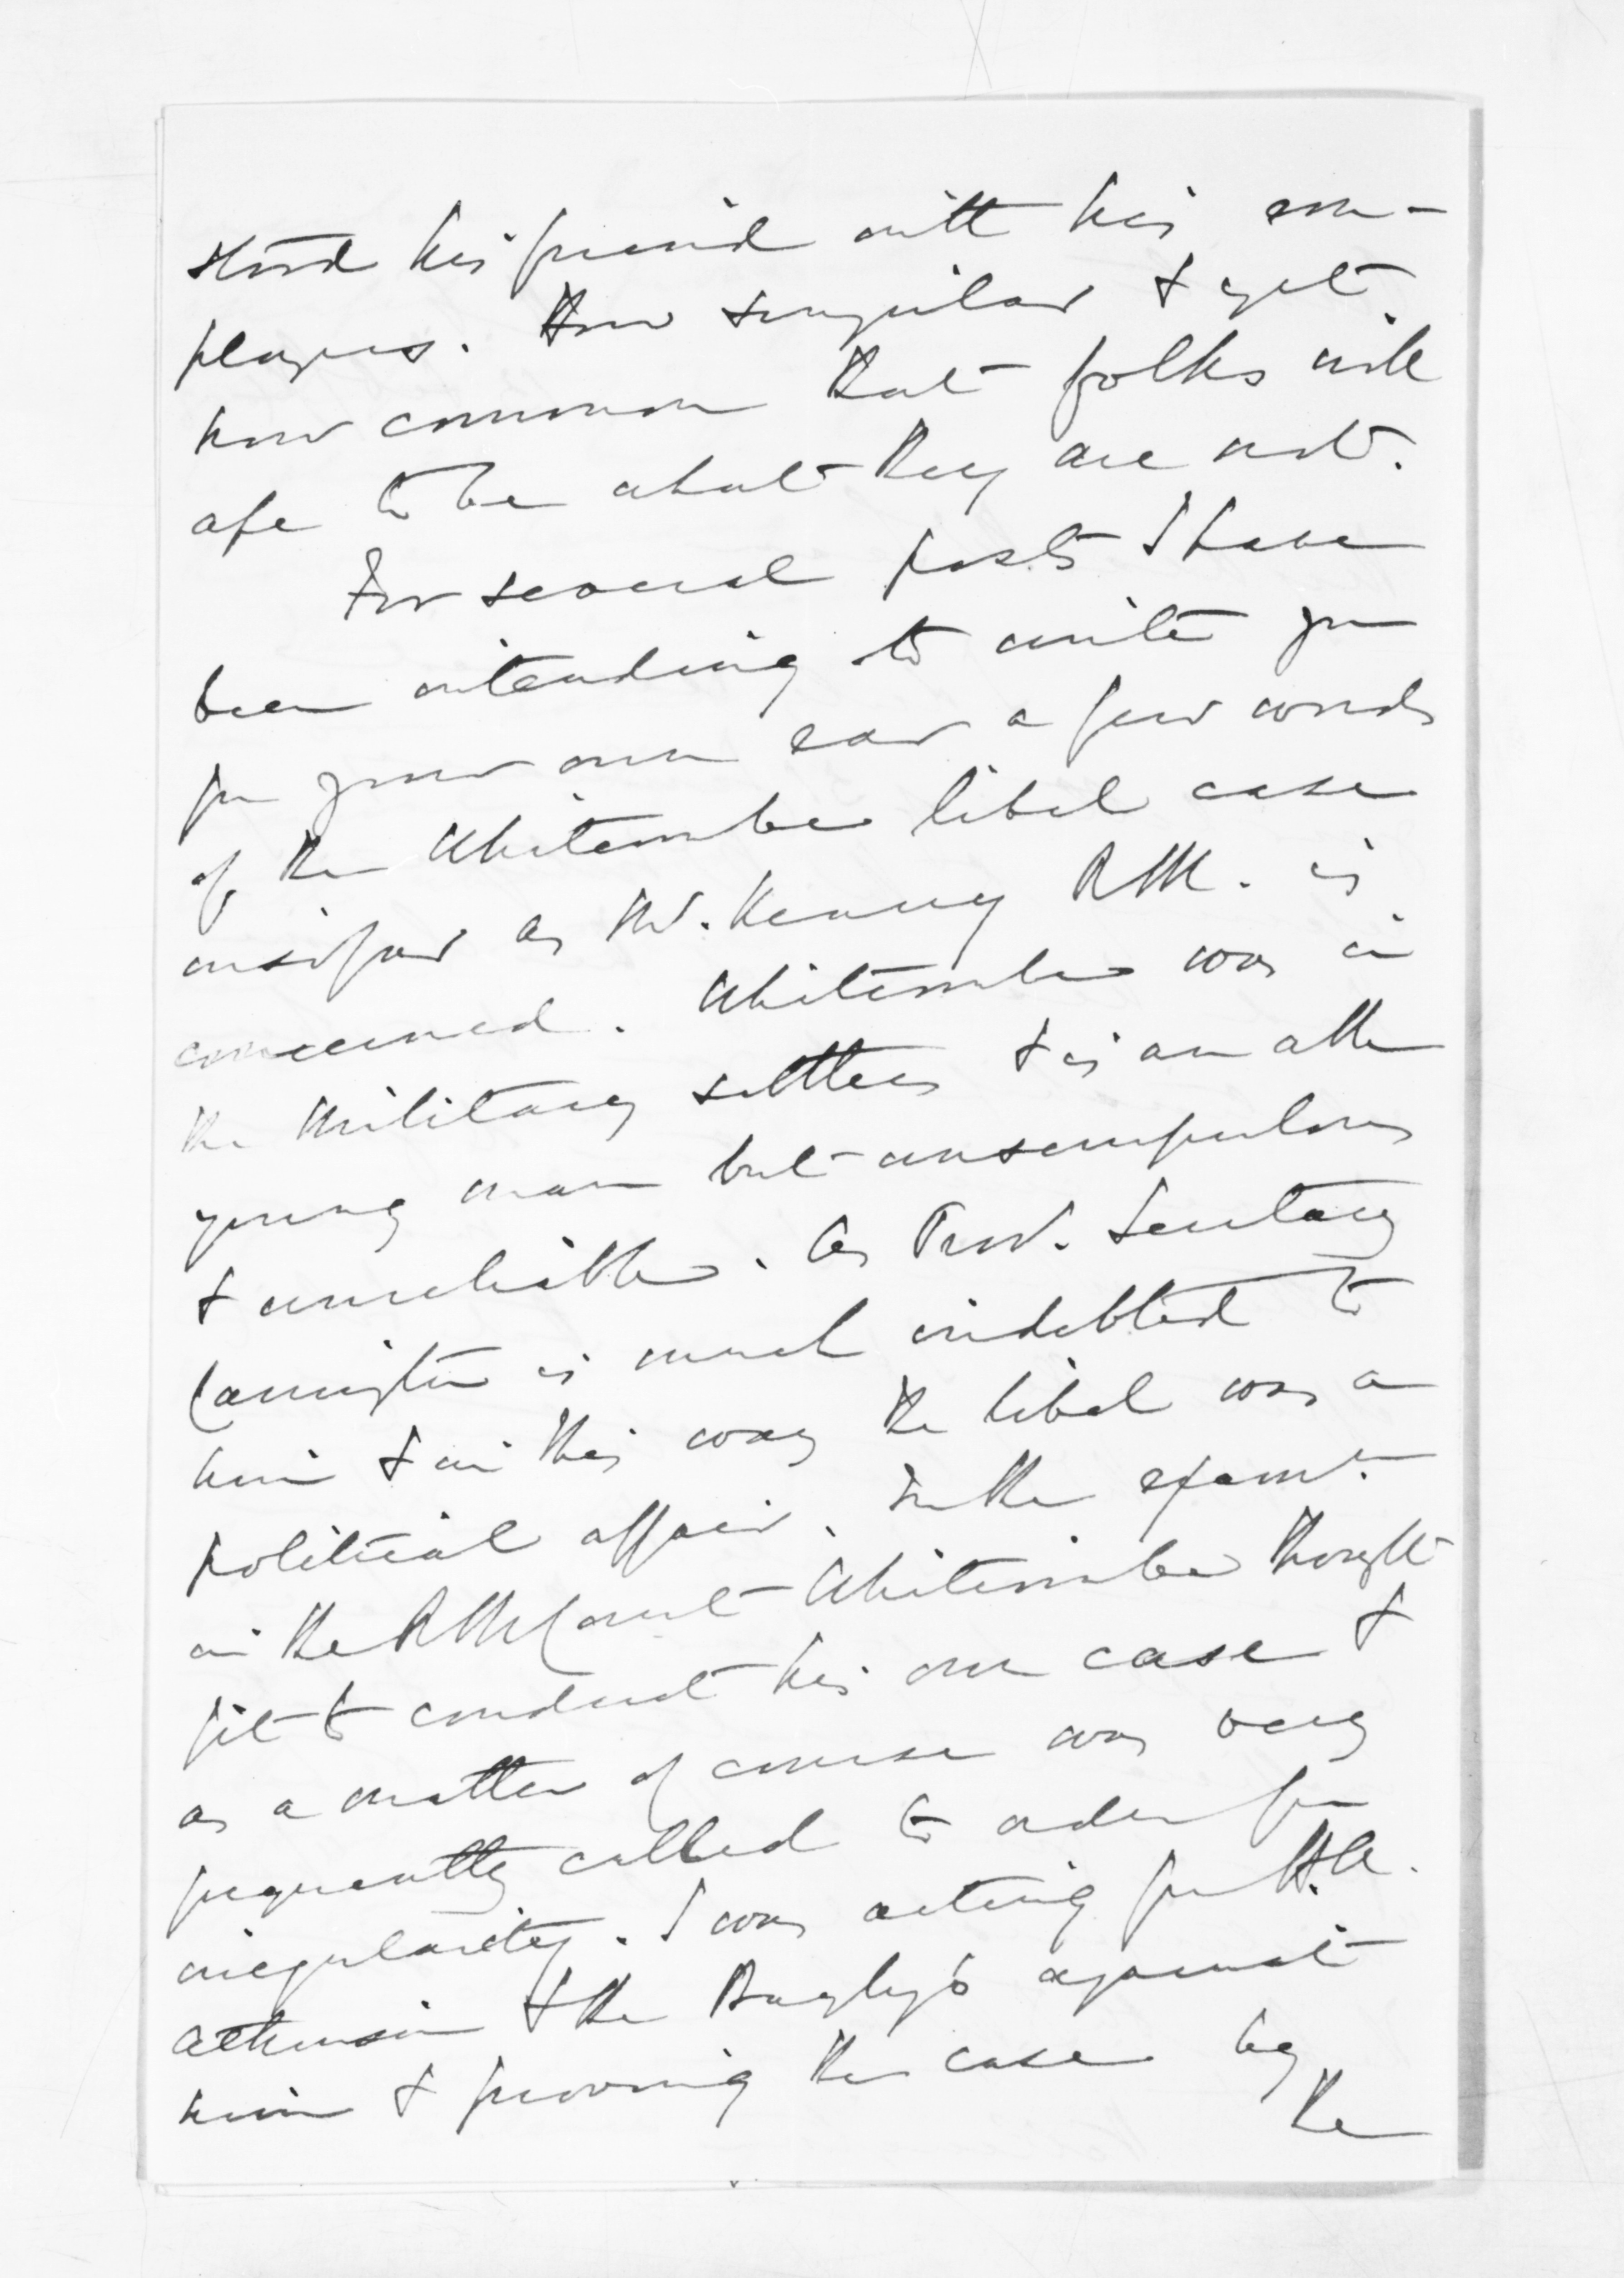 stood his friend with his em-
ployers. How singular & yet
how common that folks will
ape to be what they are not.
For several posts I have
been intending to write you
for your own ear a few words
of the Whitcombe libel case
insofar as Mr. Kenny RM. is
concerned. Whitcombe was in
the Military settlers & is an able
young man but unscrupulous
& unreliable. As Prov. Secretary
Carrington is much indebted to
him & in this way the libel was a
political affair. In the examn.
in the RM Court Whitcombe thought
fit to conduct his own case &
as a matter of course was very
frequently called to order for
irregularity. I was acting for H.A.
Atkinson & the Bayly's against
him & proving the case by
the